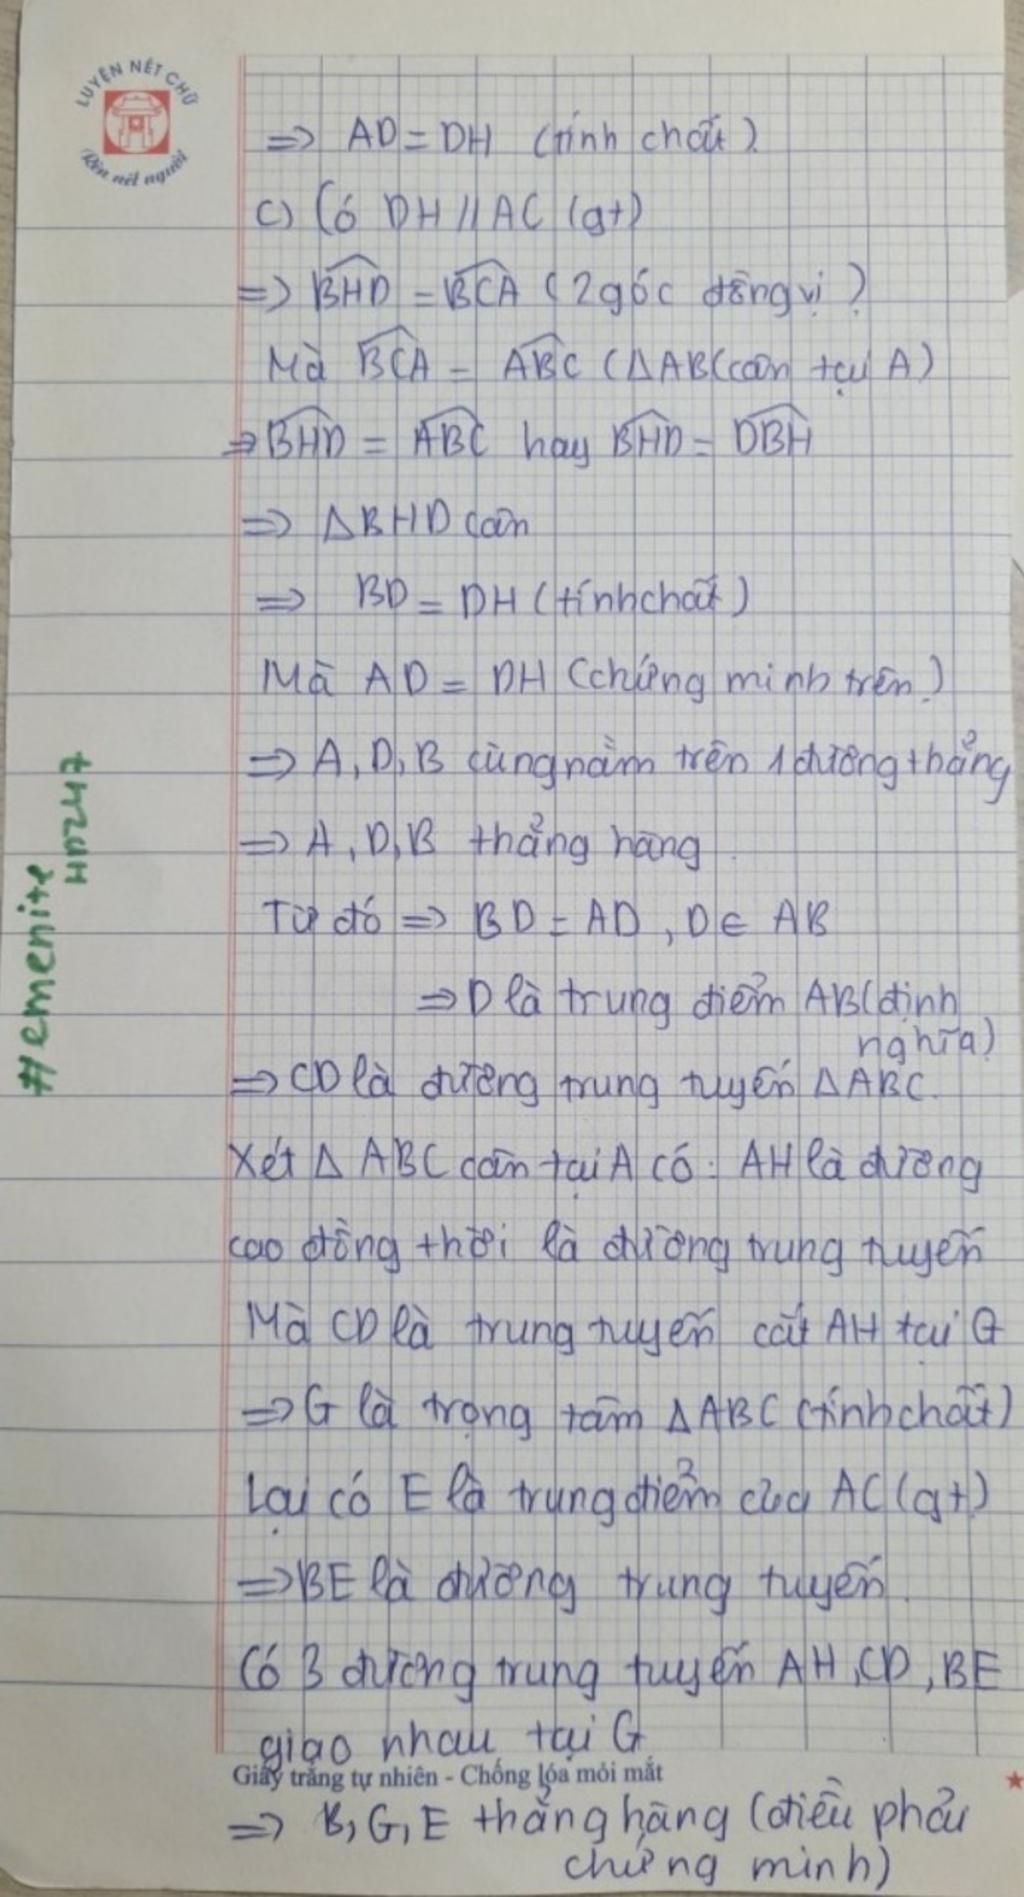 LUYỆN NÉT CHỮ
Rèn nết người
=> AD = DH (tính chất)
c) Có DH // AC (gt)
=> BHD = BCA (2 góc đồng vị)
Mà BCA = ABC (Δ ABC cân tại A)
=> BHD = ABC hay BHD = DBH
=> Δ BHD cân
=> BD = DH (tính chất)
Mà AD = DH (chứng minh trên)
=> A, D, B cùng nằm trên 1 đường thẳng
=> A, D, B thẳng hàng
Từ đó => BD = AD, D ∈ AB
=> D là trung điểm AB (định
nghĩa)
=> CD là đường trung tuyến Δ ABC.
Xét Δ ABC cân tại A có: AH là đường
cao đồng thời là đường trung tuyến
Mà CD là trung tuyến cắt AH tại G
=> G là trọng tâm Δ ABC (tính chất)
Lại có E là trung điểm của AC (gt)
=> BE là đường trung tuyến
Có 3 đường trung tuyến AH, CD, BE
giao nhau tại G
Giấy trắng tự nhiên - Chống lóa mỏi mắt
=> B, G, E thẳng hàng (điều phải
chứng minh)
#emenite
HD247